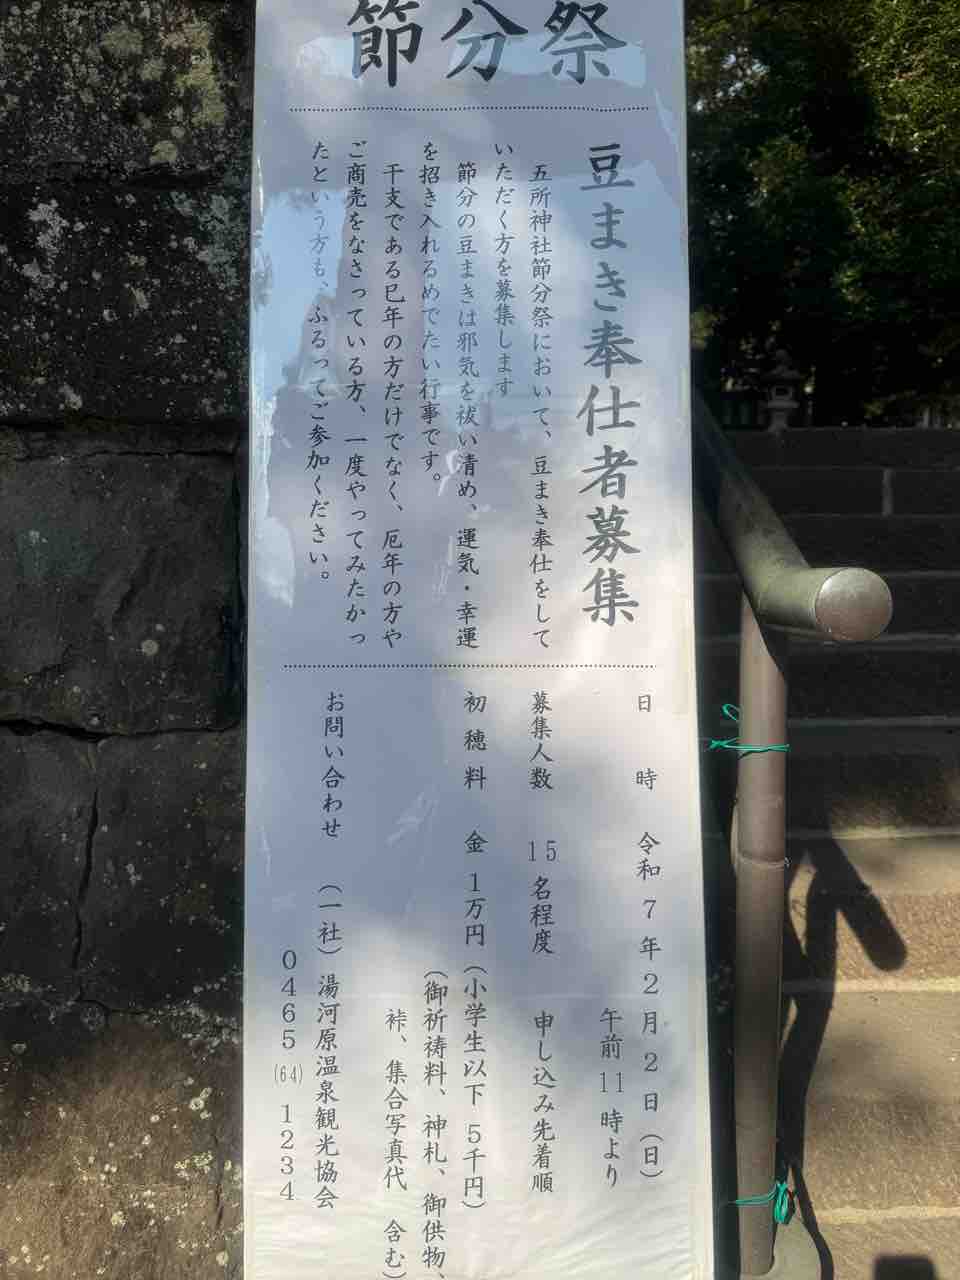 節分祭
豆まき奉仕者募集
五所神社節分祭において、豆まき奉仕をして
いただく方を募集します
節分の豆まきは邪気を祓い清め、運気・幸運
を招き入れるめでたい行事です。
干支である巳年の方だけでなく、厄年の方や
ご商売をなさっている方、一度やってみたかっ
たという方も、ふるってご参加ください。
日時 令和7年2月2日(日)
午前11時より
募集人数 15名程度 申し込み先着順
初穂料 金1万円(小学生以下5千円)
(御祈祷料、神札、御供物、
裃、集合写真代 含む)
お問い合わせ (一社)湯河原温泉観光協会
0465(64)1234